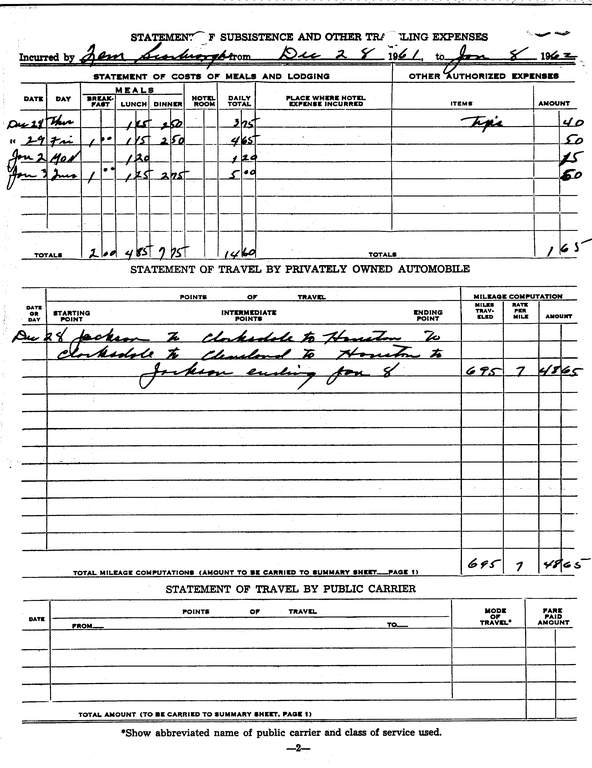 STATEMENT OF SUBSISTENCE AND OTHER TRAVELING EXPENSES
Incurred by from Dec 28 1961, to Jan 8 1962
STATEMENT OF COSTS OF MEALS AND LODGING OTHER AUTHORIZED EXPENSES
DATE DAY MEALS BREAK-FAST LUNCH DINNER HOTEL ROOM DAILY TOTAL PLACE WHERE HOTEL EXPENSE INCURRED ITEMS AMOUNT
Dec 28 Thur 1 25 2 50 3 75 Tips 40
" 29 Fri 1 00 1 15 2 50 4 65 50
Jan 2 Mon 1 20 1 20 15
Jan 3 Tues 1 00 1 25 2 75 5 00 60
TOTALS 2 00 4 85 7 75 14 60 TOTALS 1 65
STATEMENT OF TRAVEL BY PRIVATELY OWNED AUTOMOBILE
DATE OR DAY POINTS OF TRAVEL STARTING POINT INTERMEDIATE POINTS ENDING POINT MILEAGE COMPUTATION MILES TRAV-ELED RATE PER MILE AMOUNT
Dec 28 Jackson to Clarksdale to Houston to
Clarksdale to Cleveland to Houston to
Jackson ending Jan 8 695 7 48 65
TOTAL MILEAGE COMPUTATIONS (AMOUNT TO BE CARRIED TO SUMMARY SHEET—PAGE 1) 695 7 48 65
STATEMENT OF TRAVEL BY PUBLIC CARRIER
DATE POINTS OF TRAVEL FROM— TO— MODE OF TRAVEL* FARE PAID AMOUNT
TOTAL AMOUNT (TO BE CARRIED TO SUMMARY SHEET, PAGE 1)
*Show abbreviated name of public carrier and class of service used.
—2—